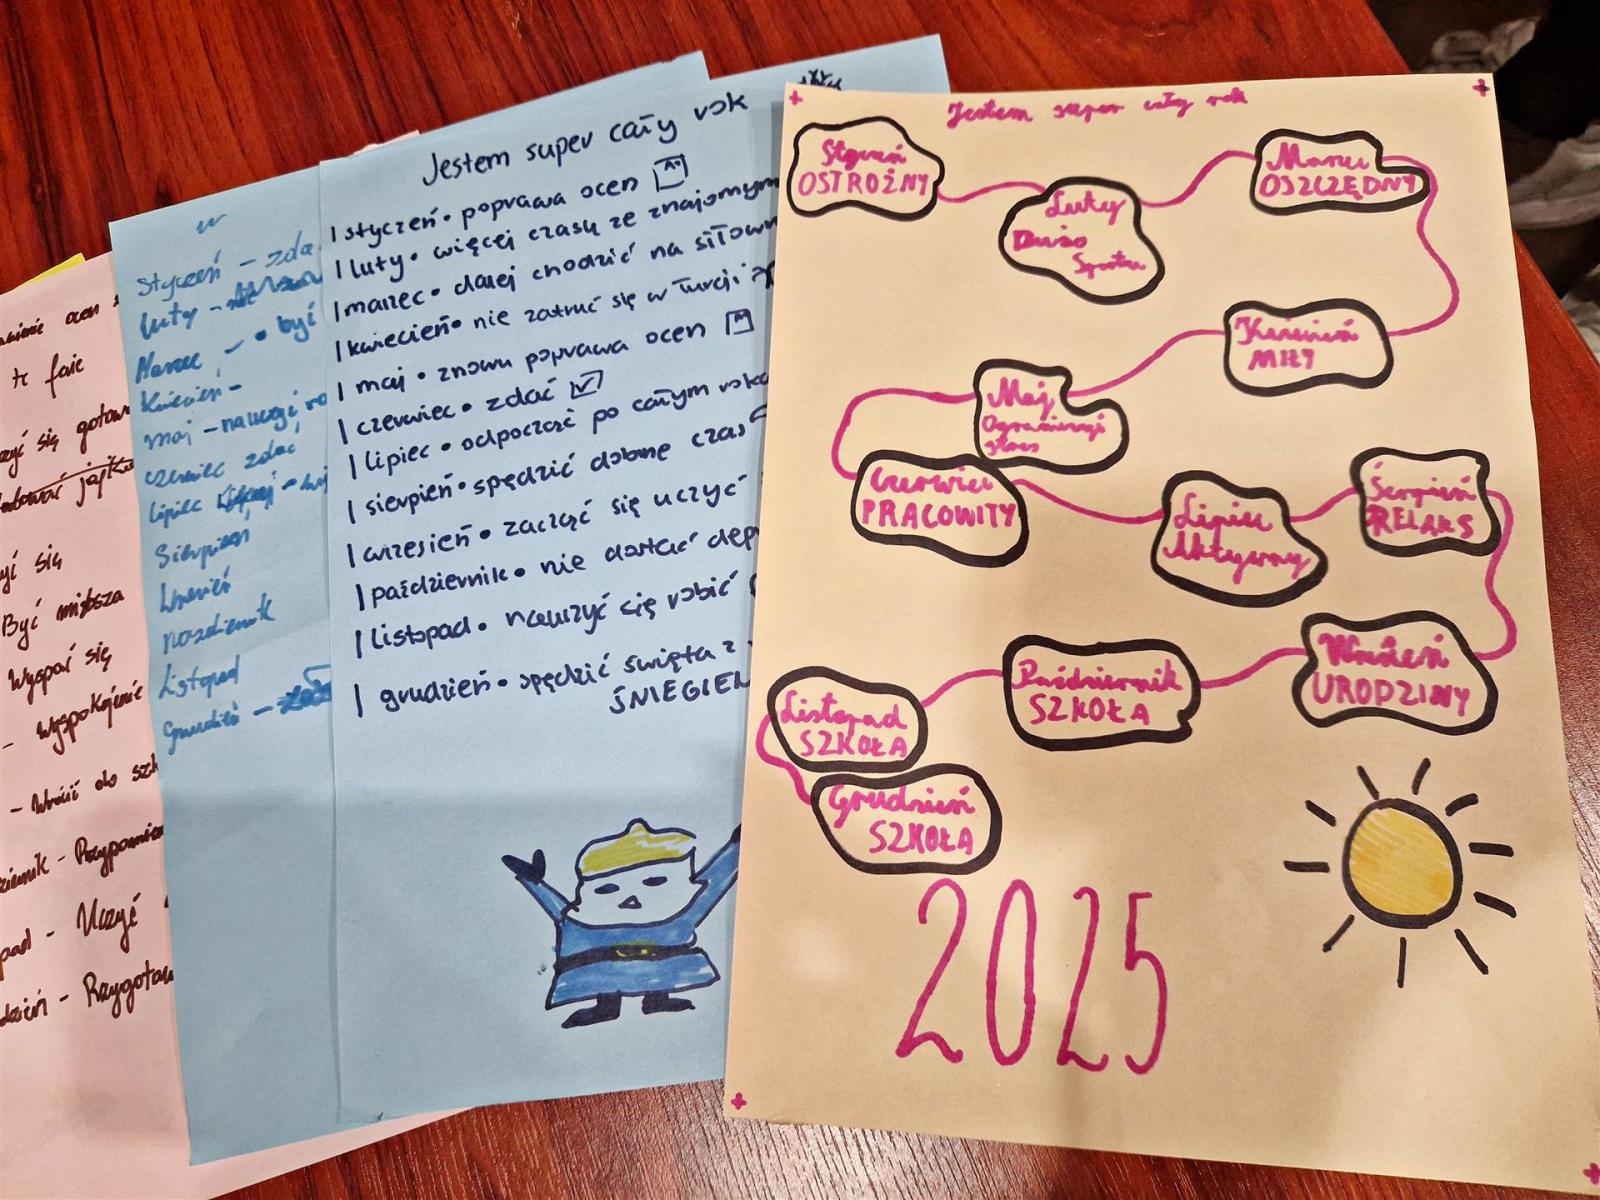 ocen
te
się gotow
się
Być milsza
Wyspać się
- Wyspokojenie
- Wrócić do szk
- Przypomnie
- Uczyć
- Przygotow
Styczeń - zda
luty -
Marzec - • być
Kwiecień -
maj - nauczyć
czerwiec zdać
lipiec
Sierpień
Listopad
Grudzień -
Jestem super cały rok
| styczeń • poprawa ocen
| luty • więcej czasu ze znajomym
| marzec • dalej chodzić na siłown
| kwiecień • nie zatruć się w Turcji
| maj • znowu poprawa ocen
| czerwiec • zdać
| lipiec • odpocząć po całym roku
| sierpień • spędzić dobrze czas
| wrzesień • zacząć się uczyć
| październik • nie dostać dep
| listopad • nauczyć się robić
| grudzień • spędzić święta z
ŚNIEGIEM
Jestem super cały rok
Styczeń
OSTROŻNY
Luty
Dużo
Sportu
Marzec
OSZCZĘDNY
Kwiecień
MIŁY
Maj
Ograniczający
stres
Czerwiec
PRACOWITY
Lipiec
Aktywny
Sierpień
RELAKS
Wrzesień
URODZINY
Październik
SZKOŁA
Listopad
SZKOŁA
Grudzień
SZKOŁA
2025